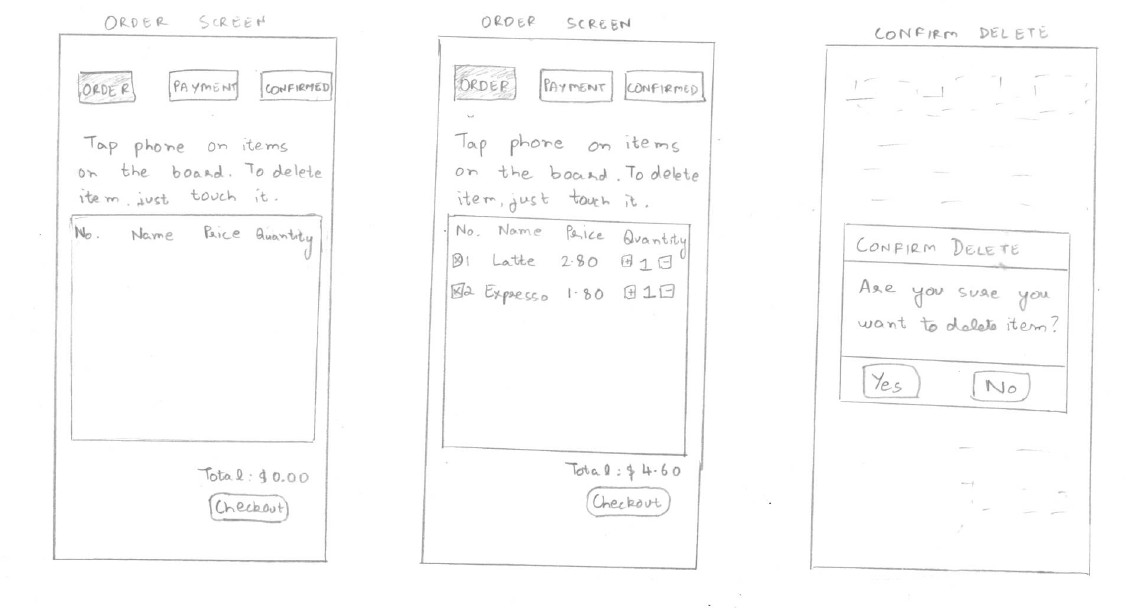 ORDER SCREEN
ORDER PAYMENT CONFIRMED
Tap phone on items
on the board. To delete
item, just touch it.
No. Name Price Quantity
Total: $0.00
Checkout
ORDER SCREEN
ORDER PAYMENT CONFIRMED
Tap phone on items
on the board. To delete
item, just touch it.
No. Name Price Quantity
x 1 Latte 2.80 + 1 -
x 2 Expresso 1.80 + 1 -
Total: $4.60
Checkout
CONFIRM DELETE
CONFIRM DELETE
Are you sure you
want to delete item?
Yes No